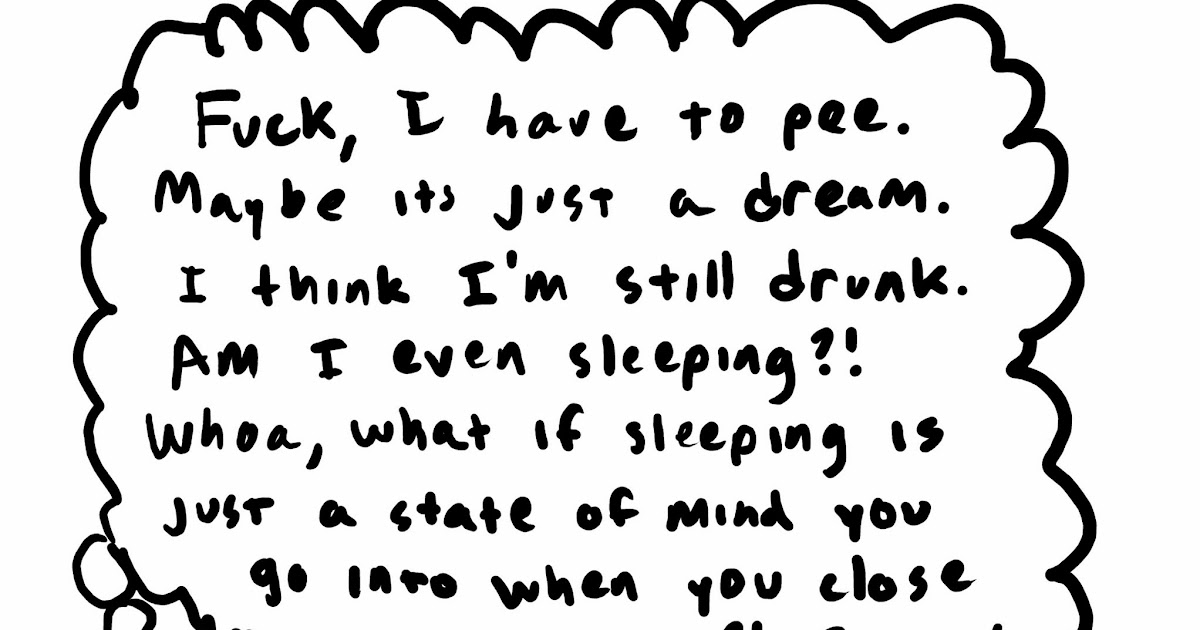 Fuck, I have to pee.
Maybe its just a dream.
I think I'm still drunk.
Am I even sleeping?!
Whoa, what if sleeping is
just a state of mind you
go into when you close